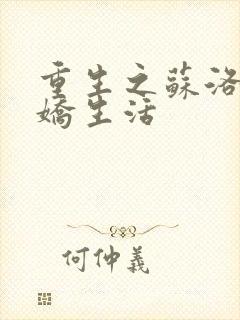 重生之蘇洛
嬌生活
何仲義